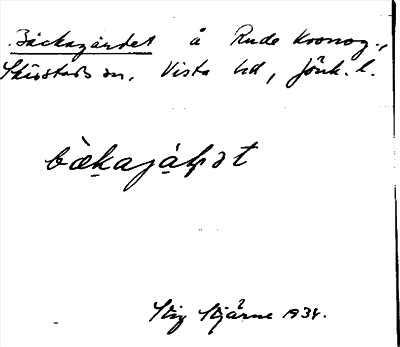 Bäckagärdet å Rude kronog.,
Skärstads sn, Vista hd, Jönk. l.
bäkajáḷət
Stig Stjärne 1934.